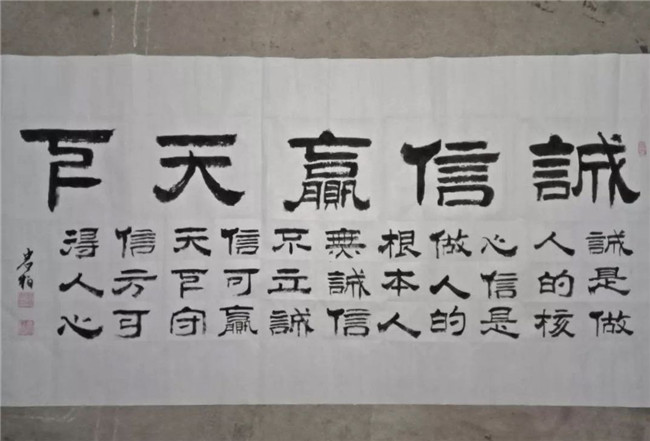 誠信贏天下
誠是做
人的核
心信是
做人的
根本人
無誠信
不立誠
信可贏
天下守
信方可
得人心